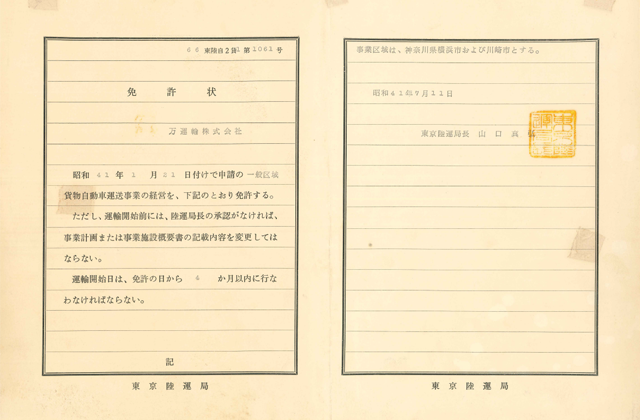 66東陸自2貨1第1061号
免許状
万運輸株式会社
昭和41年1月21日付けで申請の一般区域
貨物自動車運送事業の経営を、下記のとおり許可する。
ただし、運輸開始前には、陸運局長の承認がなければ、
事業計画または事業施設概要書の記載内容を変更しては
ならない。
運輸開始日は、免許の日から6か月以内に行な
わなければならない。
記
東京陸運局
事業区域は、神奈川県横浜市および川崎市とする。
昭和41年7月11日
東京陸運局長 山口真弘
東京陸運局